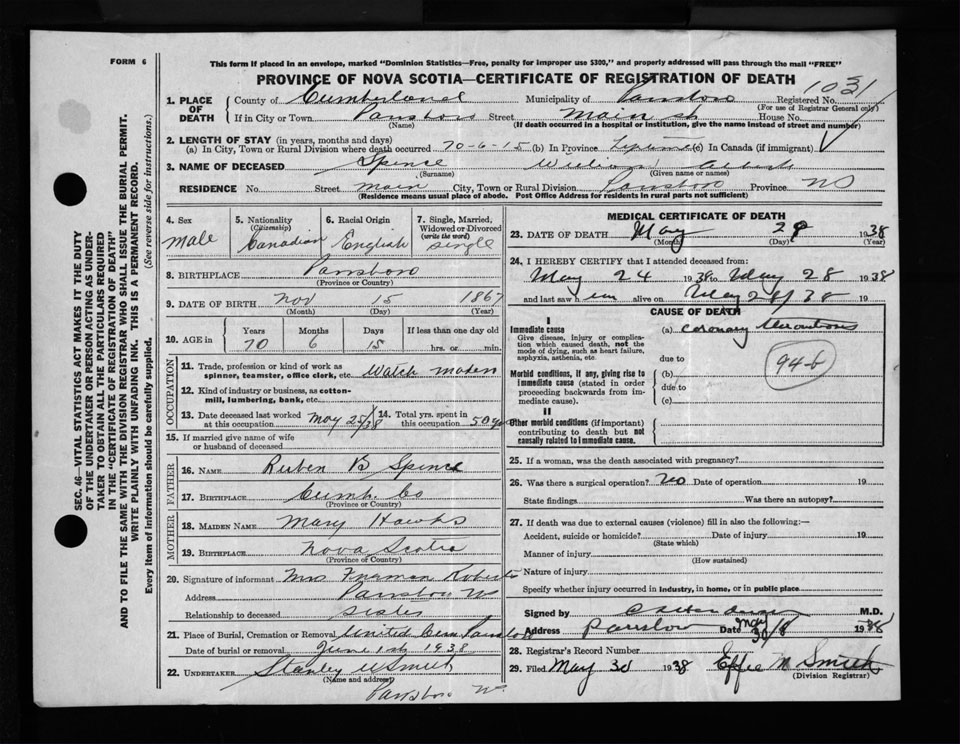 FORM 6
This form if placed in an envelope, marked "Dominion Statistics—Free, penalty for improper use $300," and properly addressed will pass through the mail "FREE"
PROVINCE OF NOVA SCOTIA—CERTIFICATE OF REGISTRATION OF DEATH
1031
1. PLACE OF DEATH { County of Cumberland Municipality of Parrsboro Registered No.
(For use of Registrar General only)
If in City or Town Parrsboro Street Main St House No.
(Name) (If death occurred in a hospital or institution, give the name instead of street and number)
2. LENGTH OF STAY (in years, months and days)
(a) In City, Town or Rural Division where death occurred 70-6-15 (b) In Province Lifetime (c) In Canada (if immigrant)
3. NAME OF DECEASED Spence William Albert
(Surname) (Given name or names)
RESIDENCE No. Street Main City, Town or Rural Division Parrsboro Province NS
(Residence means usual place of abode. Post Office Address for residents in rural parts not sufficient)
4. Sex
Male
5. Nationality (Citizenship)
Canadian
6. Racial Origin
English
7. Single, Married, Widowed or Divorced (write the word)
single
8. BIRTHPLACE Parrsboro
(Province or Country)
9. DATE OF BIRTH Nov 15 1867
(Month) (Day) (Year)
10. AGE in { Years Months Days If less than one day old
70 6 15 hrs. or min.
OCCUPATION
11. Trade, profession or kind of work as spinner, teamster, office clerk, etc. Watch
12. Kind of industry or business, as cotton-mill, lumbering, bank, etc.
13. Date deceased last worked at this occupation May 25/38
14. Total yrs. spent in this occupation 50 yrs
15. If married give name of wife or husband of deceased
FATHER
16. NAME Reuben B Spence
17. BIRTHPLACE Cumb. Co
(Province or Country)
MOTHER
18. MAIDEN NAME Mary
19. BIRTHPLACE Nova Scotia
(Province or Country)
20. Signature of informant Mrs Roberts
Address Parrsboro NS
Relationship to deceased sister
21. Place of Burial, Cremation or Removal United Cem Parrsboro
Date of burial or removal June 1st 1938
22. UNDERTAKER Stanley W Smith
(Name and address)
Parrsboro NS
MEDICAL CERTIFICATE OF DEATH
23. DATE OF DEATH May 28 1938
(Month) (Day) (Year)
24. I HEREBY CERTIFY that I attended deceased from:
May 24 1938 to May 28 1938
and last saw him alive on May 28/38 19
CAUSE OF DEATH
I
Immediate cause (a) Coronary Thrombosis
Give disease, injury or complication which caused death, not the mode of dying, such as heart failure, asphyxia, asthenia, etc.
due to
94-b
Morbid conditions, if any, giving rise to immediate cause (stated in order proceeding backwards from immediate cause).
(b)
due to
(c)
II
Other morbid conditions (if important) contributing to death but not causally related to immediate cause.
25. If a woman, was the death associated with pregnancy?
26. Was there a surgical operation? No Date of operation 19
State findings Was there an autopsy?
27. If death was due to external causes (violence) fill in also the following:—
Accident, suicide or homicide? Date of injury 19
(State which)
Manner of injury
(How sustained)
Nature of injury
Specify whether injury occurred in industry, in home, or in public place
Signed by M.D.
Address Parrsboro Date May 30/8 1938
28. Registrar's Record Number
29. Filed May 30 1938 Effie N Smith
(Division Registrar)
SEC. 46—VITAL STATISTICS ACT MAKES IT THE DUTY
OF THE UNDERTAKER OR PERSON ACTING AS UNDER-
TAKER TO OBTAIN ALL THE PARTICULARS REQUIRED
IN THE "CERTIFICATE OF REGISTRATION OF DEATH"
AND TO FILE THE SAME WITH THE DIVISION REGISTRAR WHO SHALL ISSUE THE BURIAL PERMIT.
WRITE PLAINLY WITH UNFADING INK. THIS IS A PERMANENT RECORD.
Every item of information should be carefully supplied. (See reverse side for instructions.)